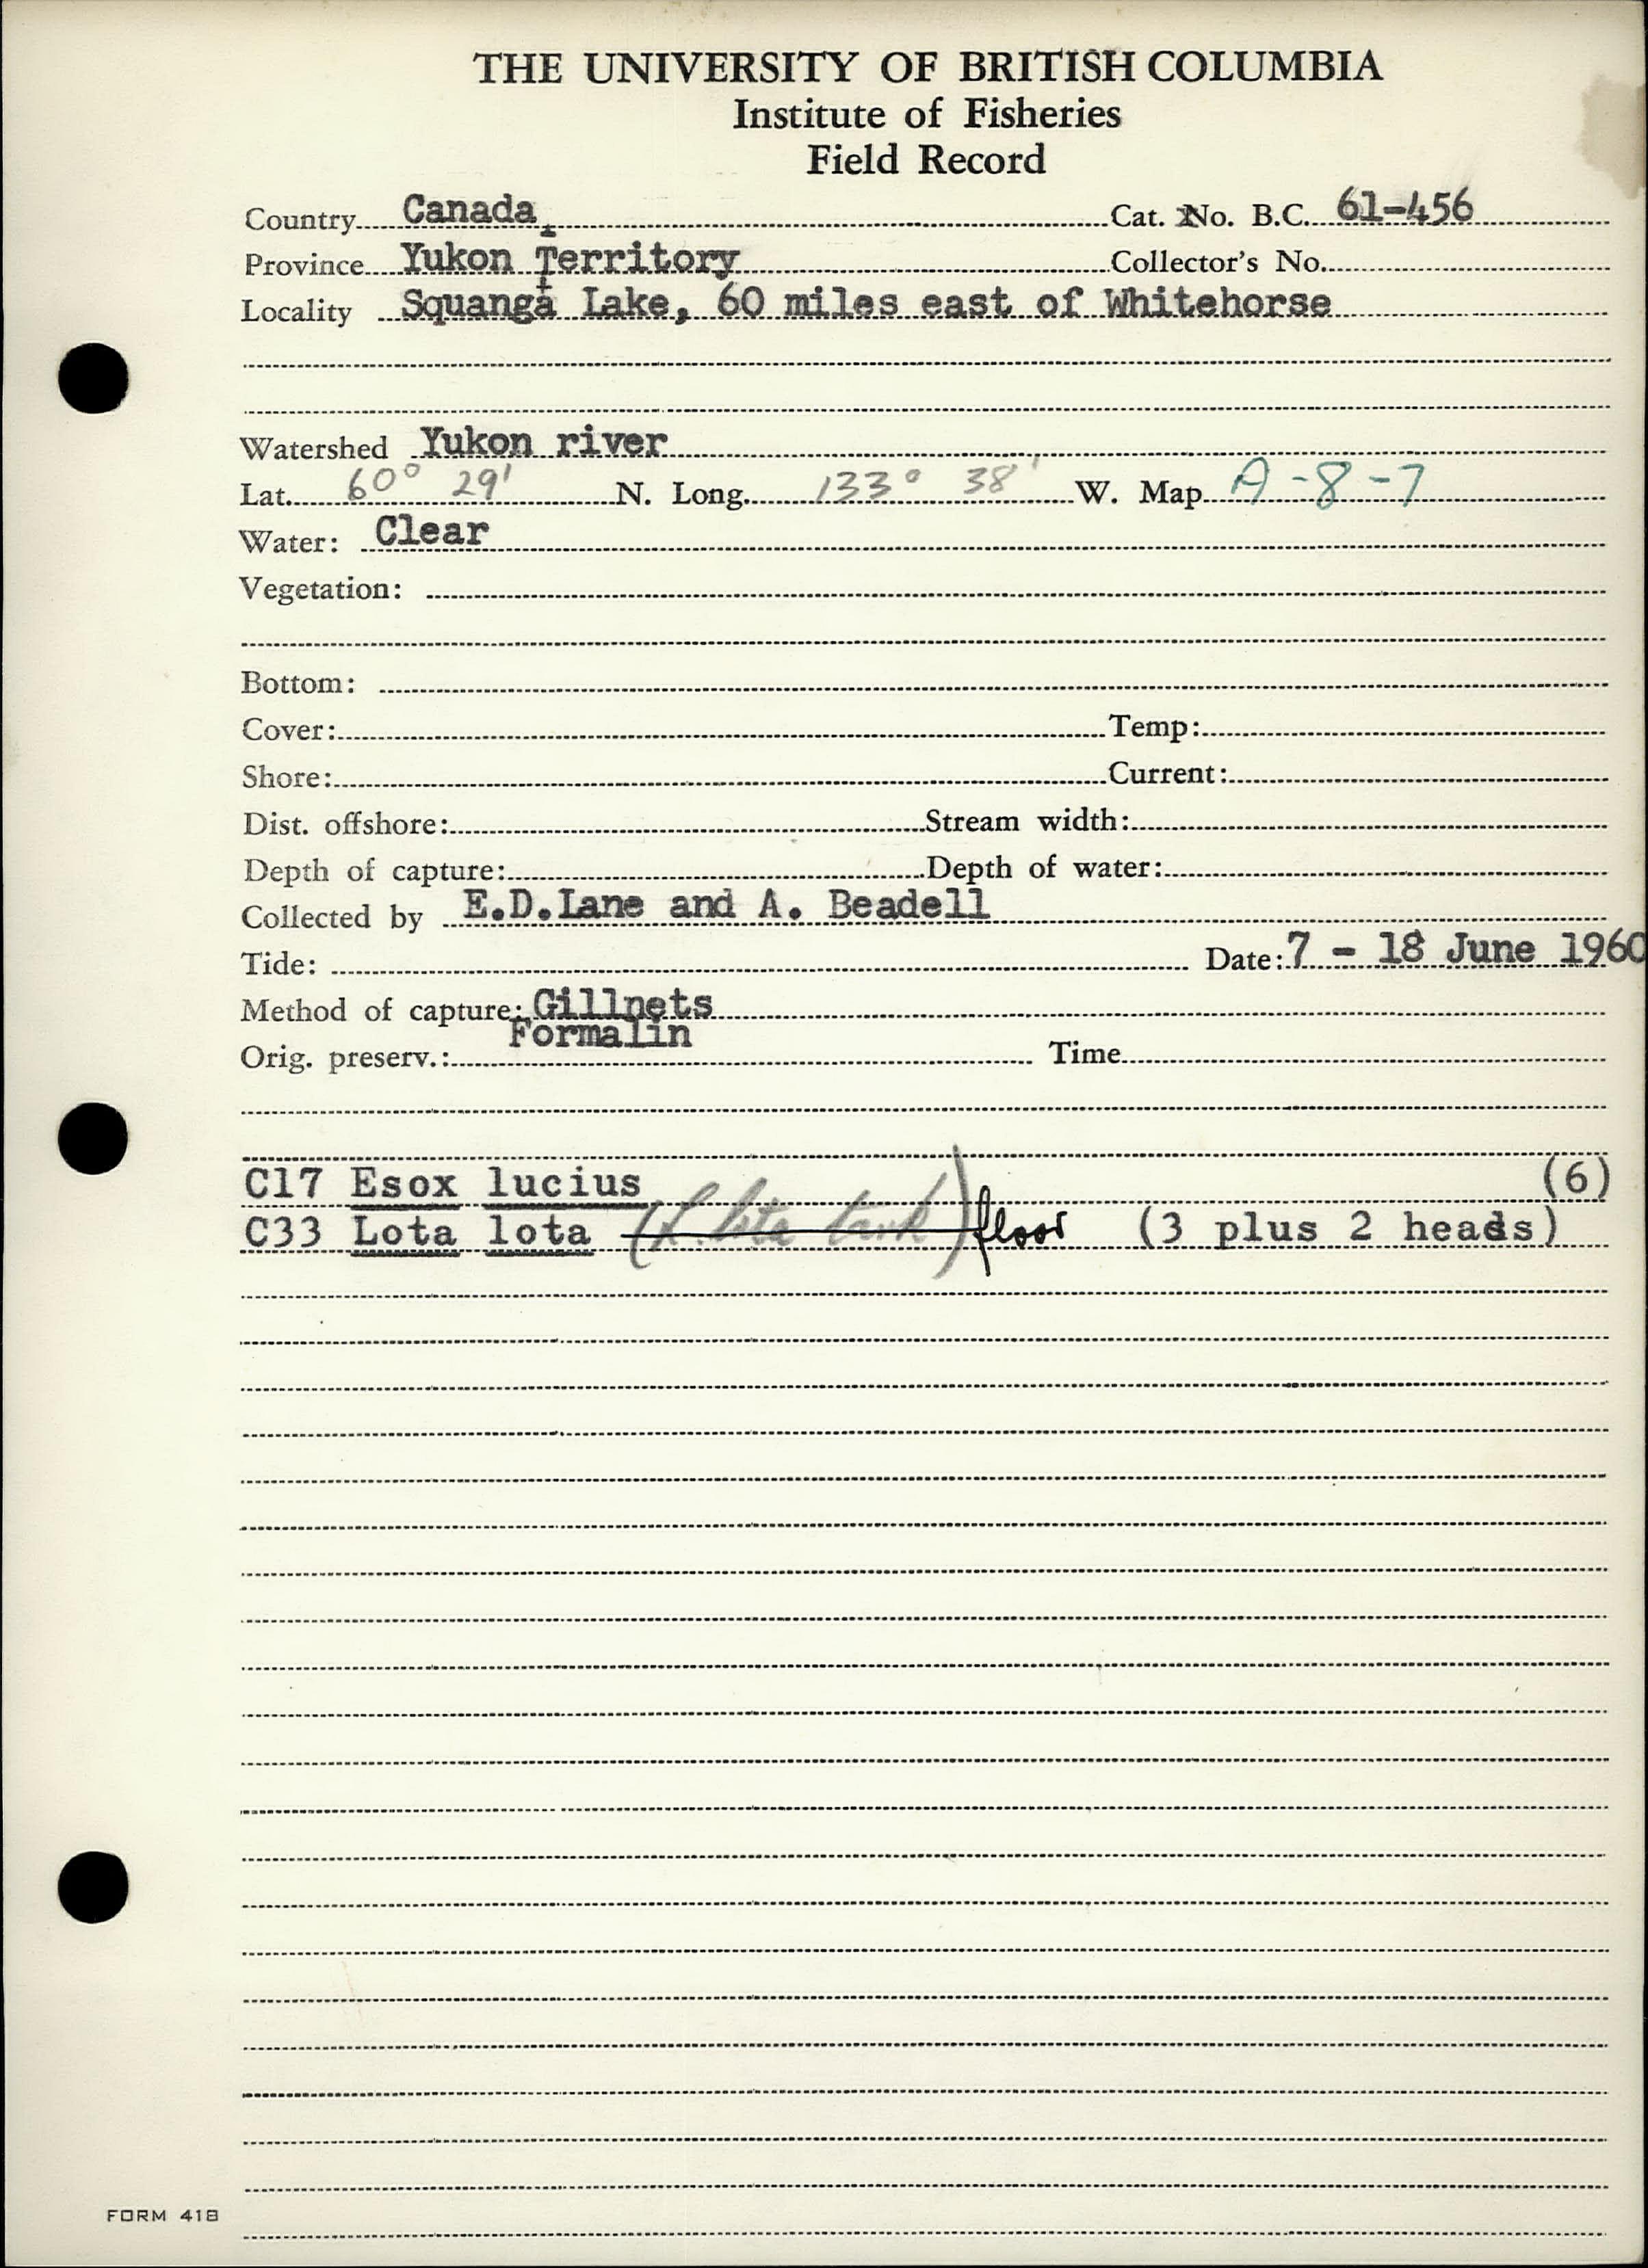 THE UNIVERSITY OF BRITISH COLUMBIA
Institute of Fisheries
Field Record
Country Canada, Cat. No. B.C. 61-456
Province Yukon Territory Collector's No.
Locality Squanga Lake, 60 miles east of Whitehorse
Watershed Yukon river
Lat. 60° 29' N. Long. 133° 38' W. Map A-8-7
Water: Clear
Vegetation:
Bottom:
Cover: Temp:
Shore: Current:
Dist. offshore: Stream width:
Depth of capture: Depth of water:
Collected by E.D.Lane and A. Beadell
Tide: Date: 7 - 18 June 1960
Method of capture: Gillnets
Orig. preserv.: Formalin Time
C17 Esox lucius (6)
C33 Lota lota (L. lota tank) floor (3 plus 2 heads)
FORM 418